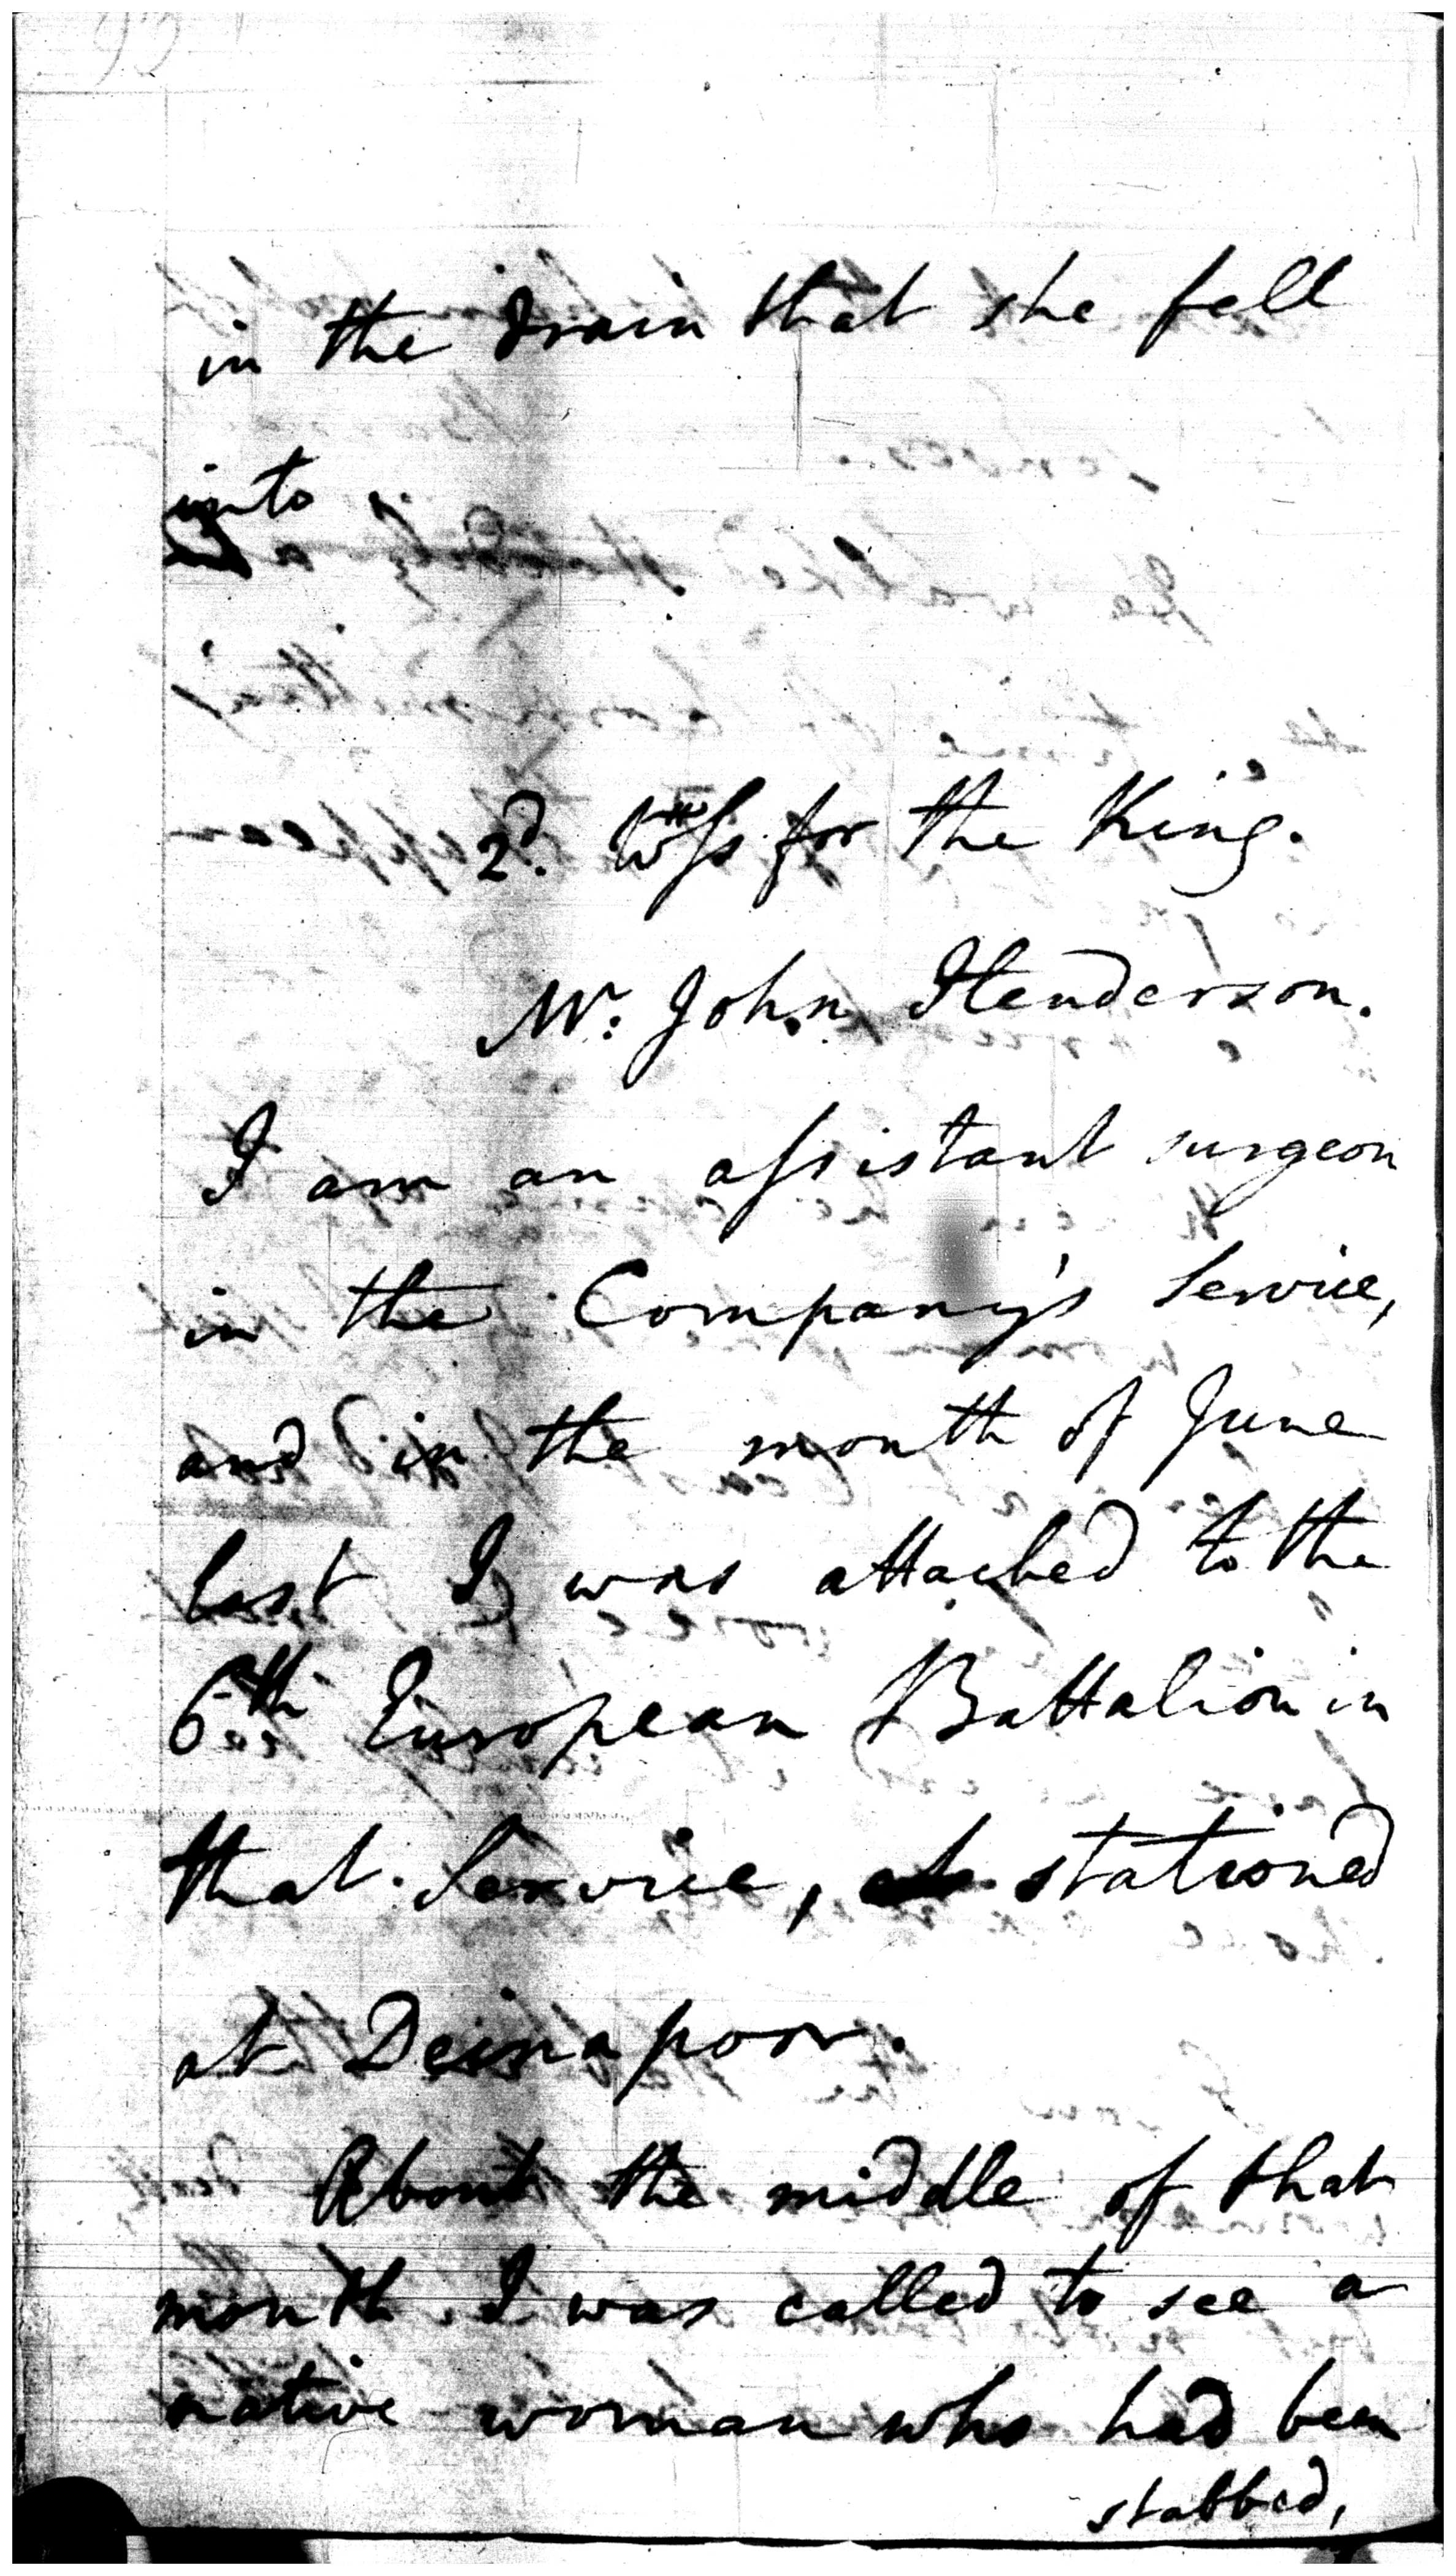 in the drain that she fell
into
2d. Wss for the King.
Mr: John Henderson.
I am an assistant surgeon
in the Company's Service,
and in the month of June
last I was attached to the
6th European Battalion in
that Service, stationed
at Deinapoor.
About the middle of that
month I was called to see a
native woman who had been
stabbed,